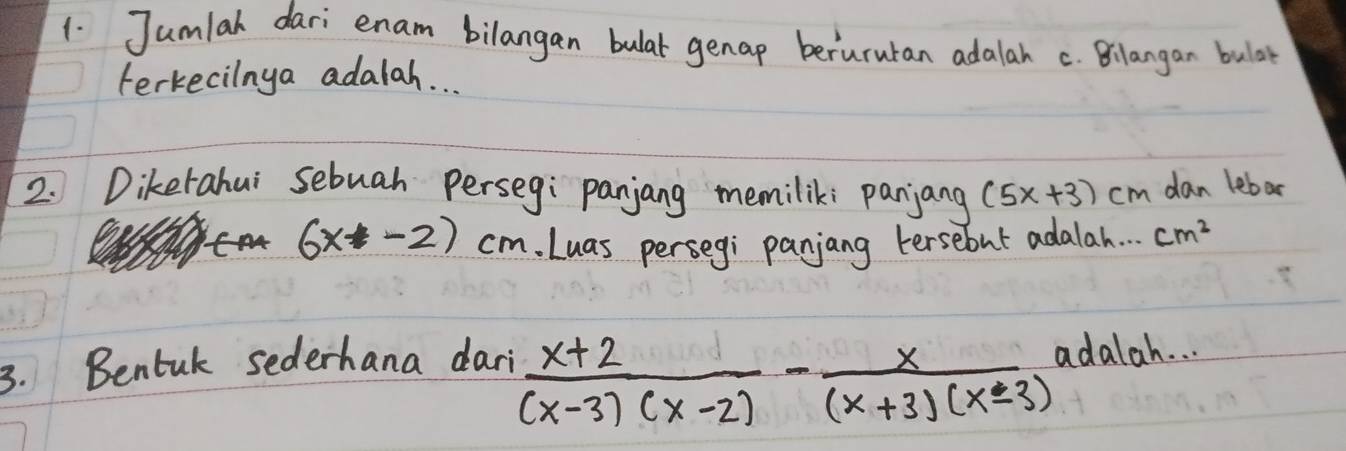 1. Jumlah dari enam bilangan bulat genap berurutan adalah c. Bilangan bulat
terkecilnya adalah...
2. Diketahui sebuah persegi panjang memiliki panjang (5x+3) cm dan lebar
6x-2) cm. Luas persegi panjang tersebut adalah... cm²
3. Bentuk sederhana dari (x+2)/((x-3)(x-2)) - x/((x+3)(x-3)) adalah...